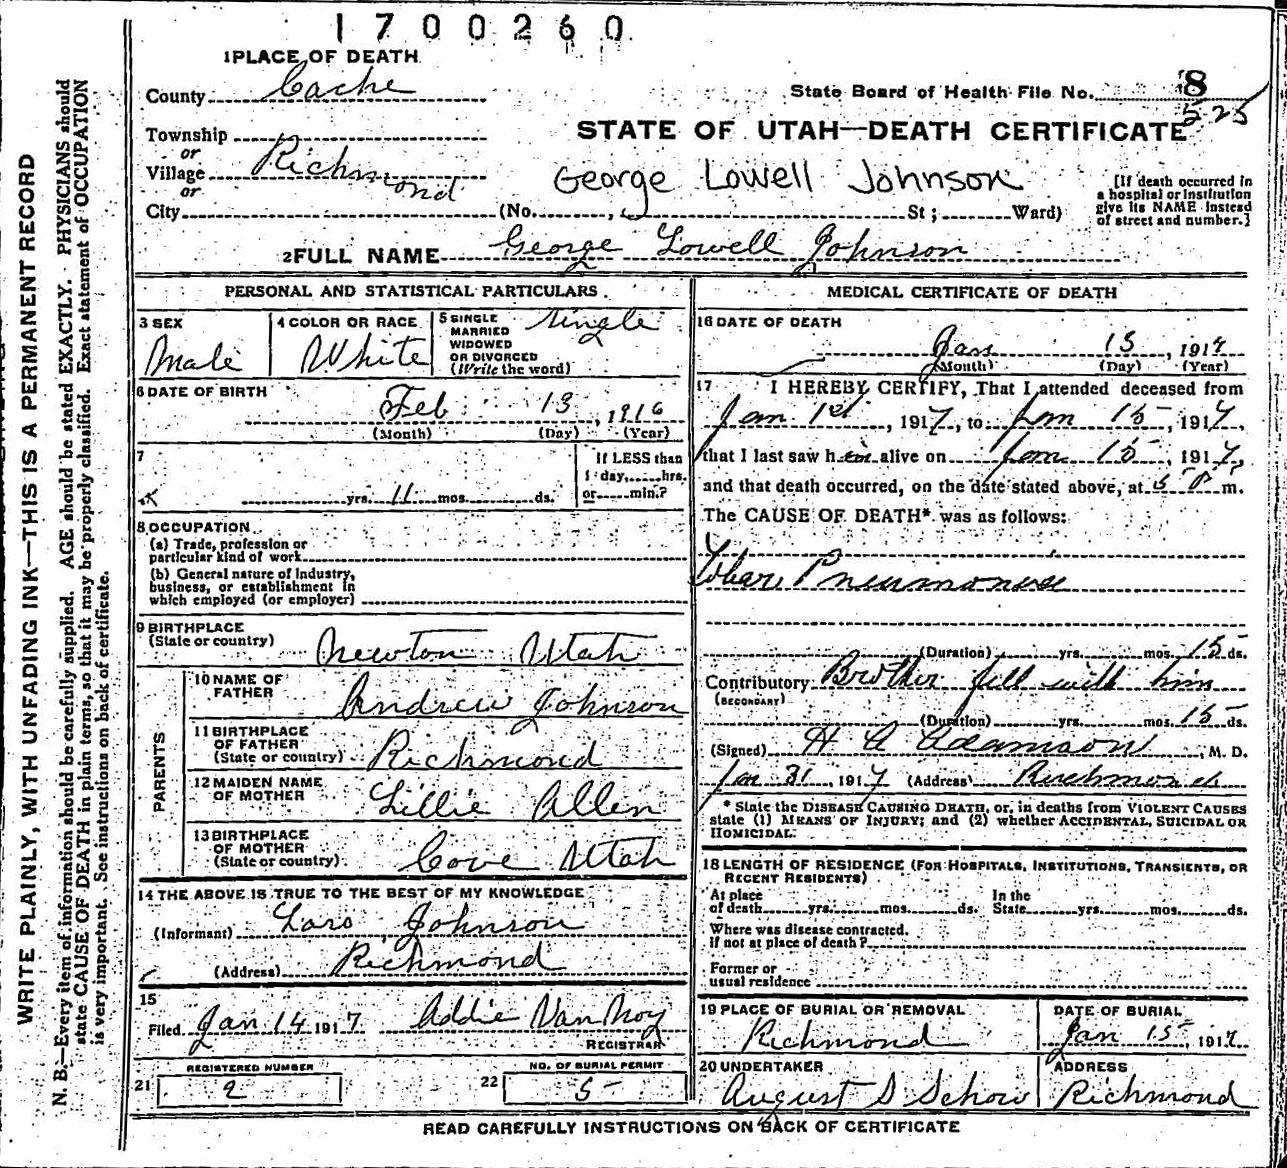 1700260
1 PLACE OF DEATH
County Cache
State Board of Health File No. 8
525
Township
or
Village Richmond
or
City (No. , St ; Ward)
STATE OF UTAH—DEATH CERTIFICATE
George Lowell Johnson
[If death occurred in
a hospital or institution
give its NAME instead
of street and number.]
2 FULL NAME George Lowell Johnson
PERSONAL AND STATISTICAL PARTICULARS
3 SEX
Male
4 COLOR OR RACE
White
5 SINGLE
MARRIED
WIDOWED
OR DIVORCED
(Write the word)
Single
6 DATE OF BIRTH
Feb 13 , 1916
(Month) (Day) (Year)
7
yrs. 11 mos. ds.
If LESS than
1 day, hrs.
or min.?
8 OCCUPATION
(a) Trade, profession or
particular kind of work
(b) General nature of Industry,
business, or establishment in
which employed (or employer)
9 BIRTHPLACE
(State or country) Newton Utah
PARENTS
10 NAME OF
FATHER Andrew Johnson
11 BIRTHPLACE
OF FATHER
(State or country) Richmond
12 MAIDEN NAME
OF MOTHER Lillie Allen
13 BIRTHPLACE
OF MOTHER
(State or country) Cove Utah
14 THE ABOVE IS TRUE TO THE BEST OF MY KNOWLEDGE
(Informant) Lars Johnson
(Address) Richmond
15
Filed Jan 14 1917 Addie Van Noy
REGISTRAR
21 REGISTERED NUMBER
2
22 NO. OF BURIAL PERMIT
5
MEDICAL CERTIFICATE OF DEATH
16 DATE OF DEATH
Jan 13 , 1917
(Month) (Day) (Year)
17 I HEREBY CERTIFY, That I attended deceased from
Jan 1st , 1917, to Jan 15 , 1917,
that I last saw him alive on Jan 15 , 1917,
and that death occurred, on the date stated above, at 5 P m.
The CAUSE OF DEATH* was as follows:
Lobar
(Duration) yrs. mos. 15 ds.
Contributory Brother fell with him
(SECONDARY)
(Duration) yrs. mos. 15 ds.
(Signed) H A Adamson , M. D.
Jan 31 , 1917 (Address) Richmond
* State the DISEASE CAUSING DEATH, or, in deaths from VIOLENT CAUSES
state (1) MEANS OF INJURY; and (2) whether ACCIDENTAL, SUICIDAL OR
HOMICIDAL.
18 LENGTH OF RESIDENCE (FOR HOSPITALS, INSTITUTIONS, TRANSIENTS, OR
RECENT RESIDENTS)
At place
of death yrs. mos. ds.
In the
State yrs. mos. ds.
Where was disease contracted,
if not at place of death?
Former or
usual residence
19 PLACE OF BURIAL OR REMOVAL
Richmond
DATE OF BURIAL
Jan 15 , 1917
20 UNDERTAKER
August S Schow
ADDRESS
Richmond
READ CAREFULLY INSTRUCTIONS ON BACK OF CERTIFICATE
WRITE PLAINLY, WITH UNFADING INK—THIS IS A PERMANENT RECORD
N. B.—Every item of information should be carefully supplied. AGE should be stated EXACTLY. PHYSICIANS should
state CAUSE OF DEATH in plain terms, so that it may be properly classified. Exact statement of OCCUPATION
is very important. See instructions on back of certificate.